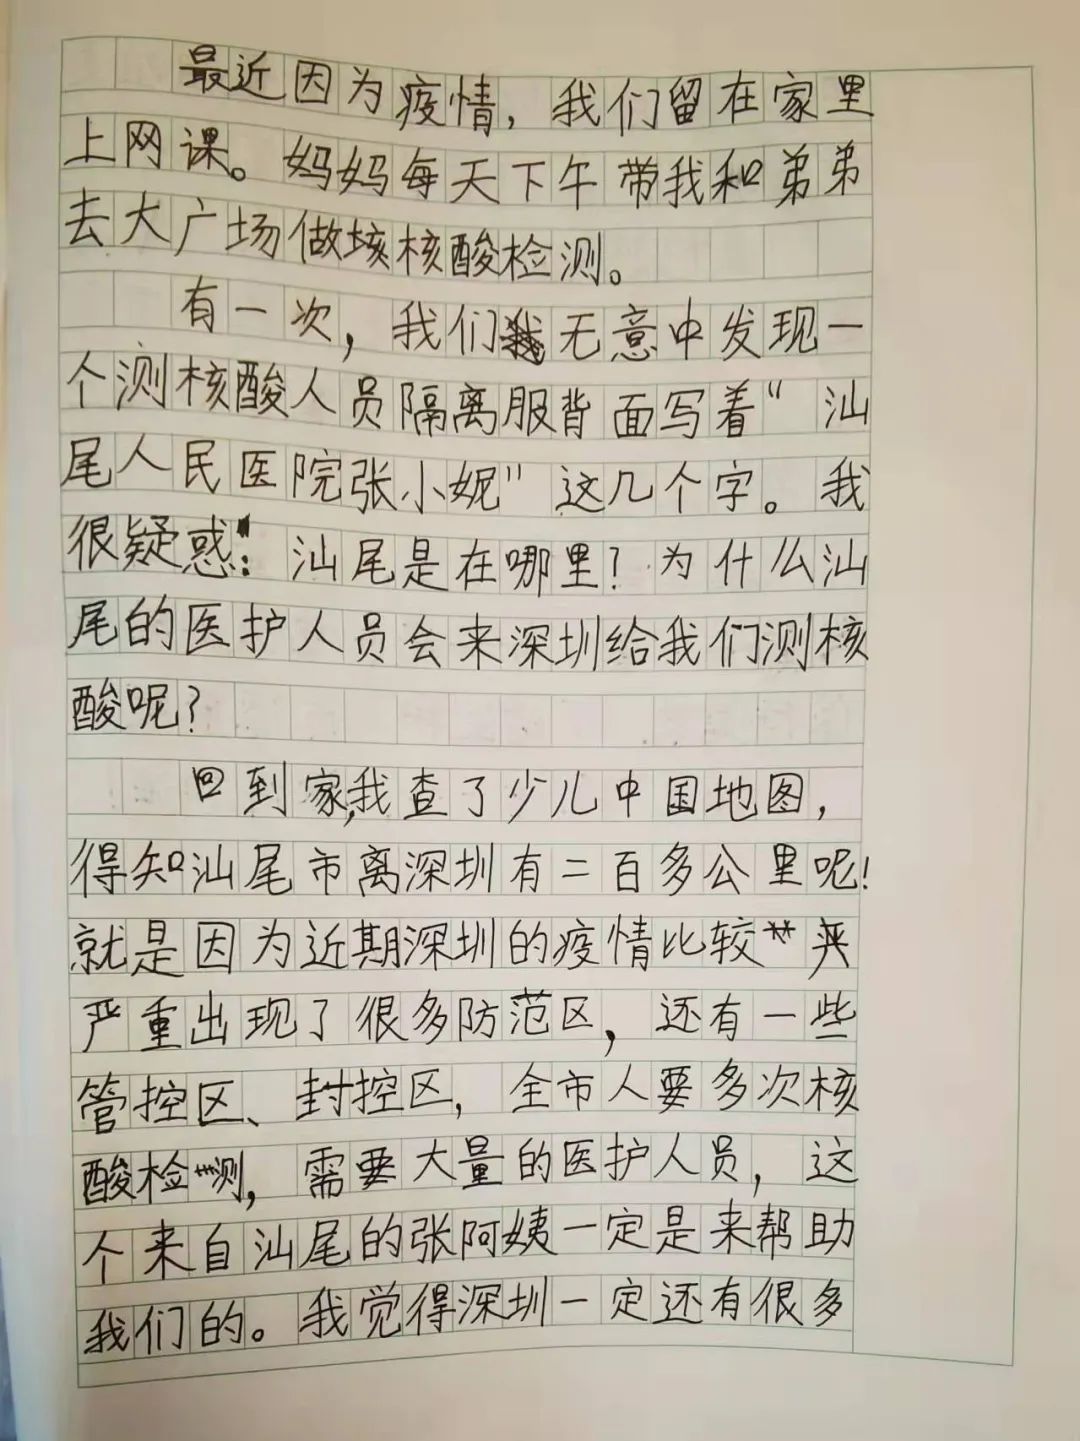 最近因为疫情，我们留在家里
上网课。妈妈每天下午带我和弟弟
去大广场做核酸检测。
有一次，我们无意中发现一
个测核酸人员隔离服背面写着“汕
尾人民医院张小妮”这几个字。我
很疑惑：汕尾是在哪里？为什么汕
尾的医护人员会来深圳给我们测核
酸呢？
回到家,我查了少儿中国地图，
得知汕尾市离深圳有二百多公里呢！
就是因为近期深圳的疫情比较
严重出现了很多防范区，还有一些
管控区、封控区，全市人要多次核
酸检测，需要大量的医护人员，这
个来自汕尾的张阿姨一定是来帮助
我们的。我觉得深圳一定还有很多